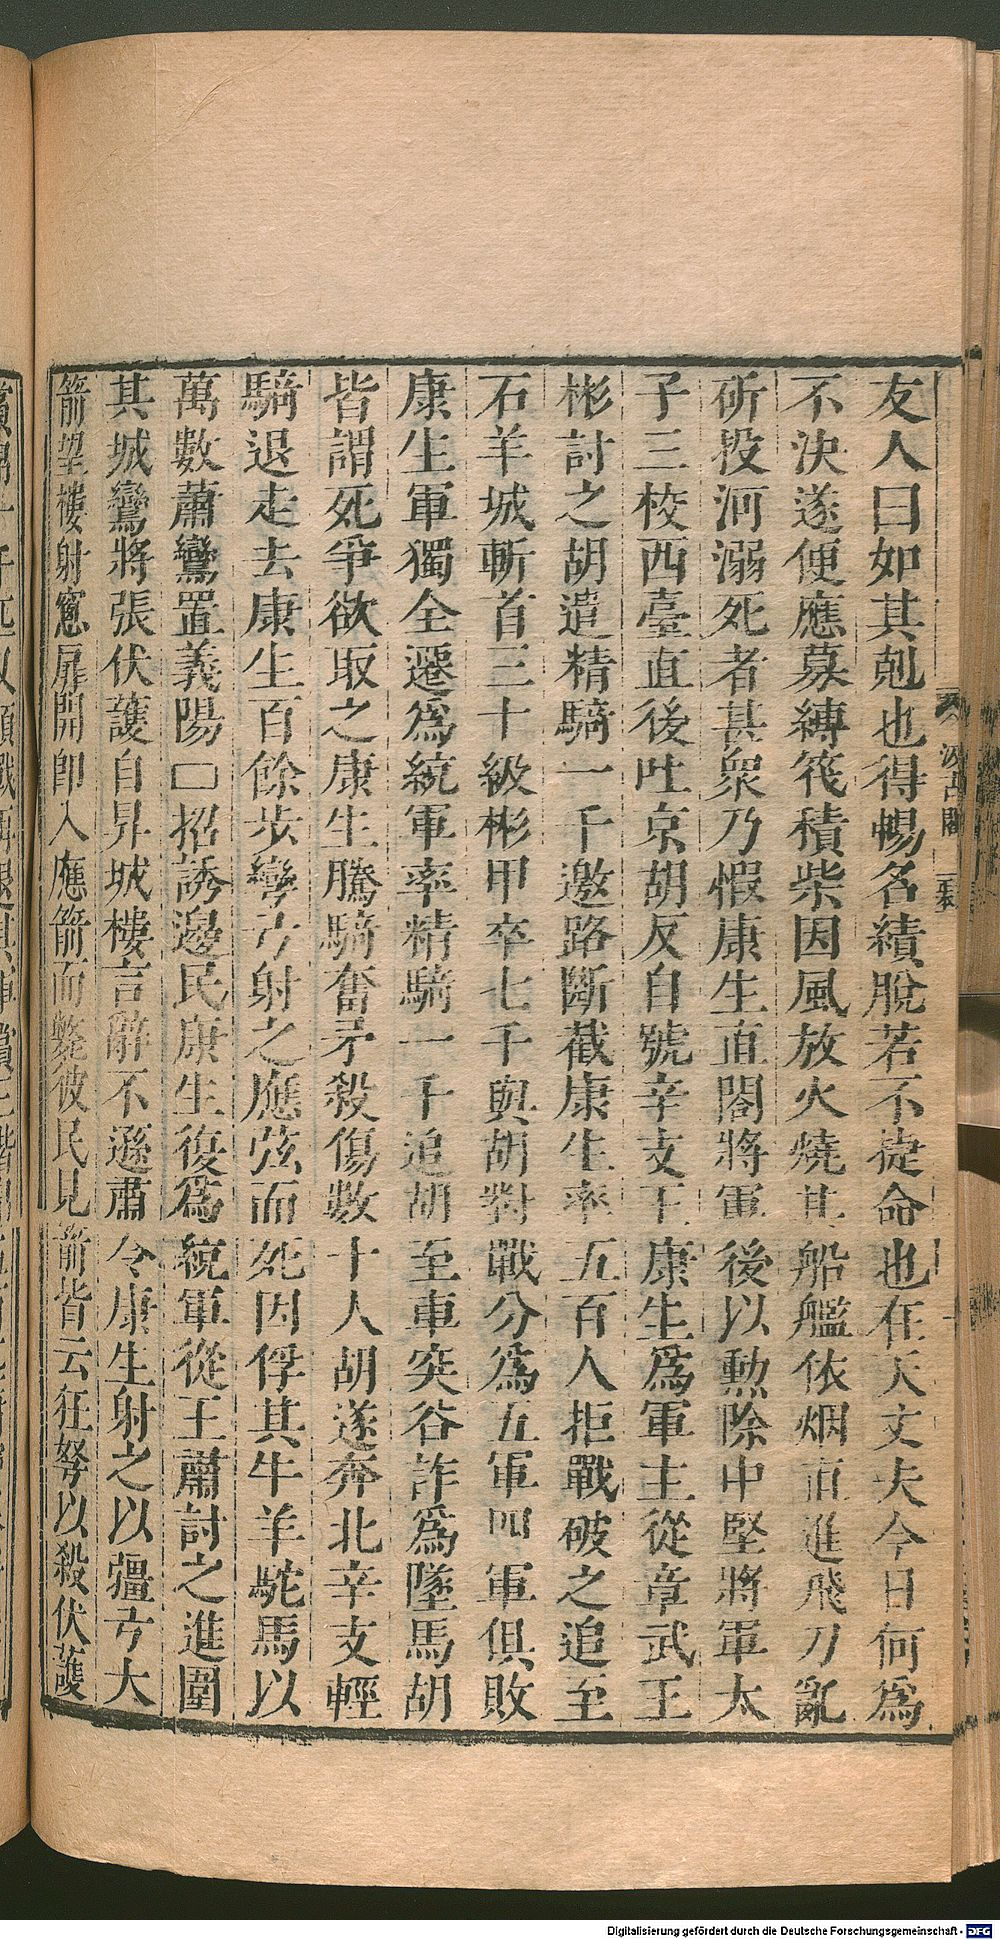 友人曰如其剋也得暢名績脫若不捷命也在天丈夫今日何爲
不決遂便應募縛筏積柴因風放火燒其船艦依烟直進飛刀亂
斫投河溺死者甚衆乃假康生直閤將軍後以勲除中堅將軍太
子三校西臺直後吐京胡反自號辛支王康生爲軍主從章武王
彬討之胡遣精騎一千邀路斷截康生率五百人拒戰破之追至
石羊城斬首三十級彬甲卒七千與胡對戰分爲五軍四軍俱敗
康生軍獨全遷爲統軍率精騎一千追胡至車突谷詐爲墜馬胡
皆謂死爭欲取之康生騰騎奮矛殺傷數十人胡遂奔北辛支輕
騎退走去康生百餘步彎弓射之應弦而死因俘其牛羊駝馬以
萬數蕭鸞置義陽口招誘邊民康生復爲統軍從王肅討之進圍
其城鸞將張伏護自昇城樓言辭不遜肅令康生射之以彊弓大
箭望樓射窻扉開即入應箭而斃彼民見箭皆云狂弩以殺伏護
汲古閣
Digitalisierung gefördert durch die Deutsche Forschungsgemeinschaft - DFG